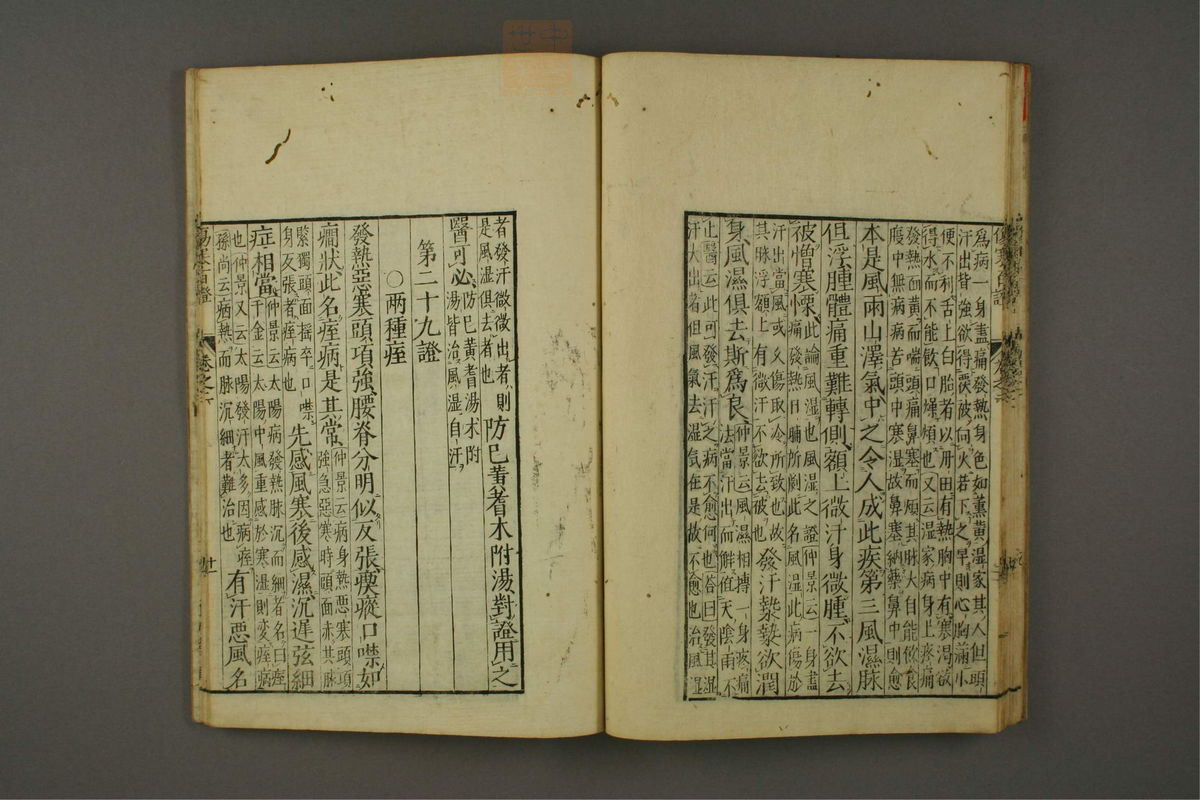 為病一身盡痛發熱身色如薰黃濕家其人但頭
汗出皆強欲得覆被向火若下之早則心胸滿小
便不利舌上白胎者以丹田有熱胸中有寒渴欲
得水而不能飲口燥煩也又云濕家病身上疼痛
發熱面黃而喘頭痛鼻塞而煩其脉大自能飲食
腹中無病病若頭中寒濕故鼻塞納藥鼻中則愈
本是風雨山澤氣中之令人成此疾第三風濕脉
但浮腫體痛重難轉側額上微汗身微腫不欲去
被憎寒慄
此論風濕也風濕之證仲景云一身盡
痛發熱日晡所劇此名風濕此病傷於
汗出當風或久傷取冷所致也故
其脉浮額上有微汗不欲去被也
發汗漐漐欲潤
身風濕俱去斯為良
仲景云風濕相摶一身疼痛
法當汗出而解值天陰雨不
止醫云此可發汗汗之病不愈何也荅曰發其濕
汗大出者但風氣去濕氣在是故不愈也治風濕
者發汗微微出者則
是風濕俱去者也
防巳黃耆木附湯對證用之
醫可必
防巳黃耆湯术附
湯皆治風濕自汗
第二十九證
○兩種痓
發熱惡寒頭項強腰脊分明似反張瘈瘲口噤如
癇狀此名痓病是其常
仲景云病身熱惡寒頭項
強急惡寒時頭面赤其脉
緊獨頭面搖卒口噤
身反張者痓病也
先感風寒後感濕沉遲弦細
症相當
仲景云太陽病發熱脉沉而細者名曰痓
千金云太陽中風重感於寒濕則变痓病
也仲景又云太陽發汗太多因病痓
孫尚云病熱而脉沉細者難治也
有汗惡風名